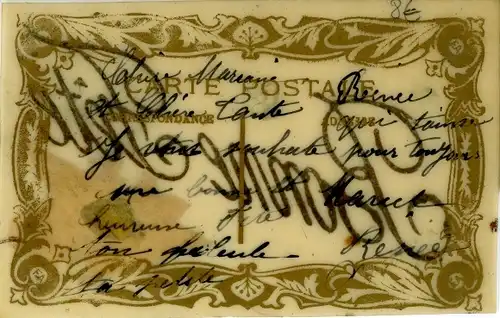 8€
Chère Marraine
CARTE POSTALE
CORRESPONDANCE
et Chère Tante
Je vous souhaite
une bonne et
heureuse fête
ton filleule
la petite
Renée
qui t'aime
pour toujours
Marcel
Renée